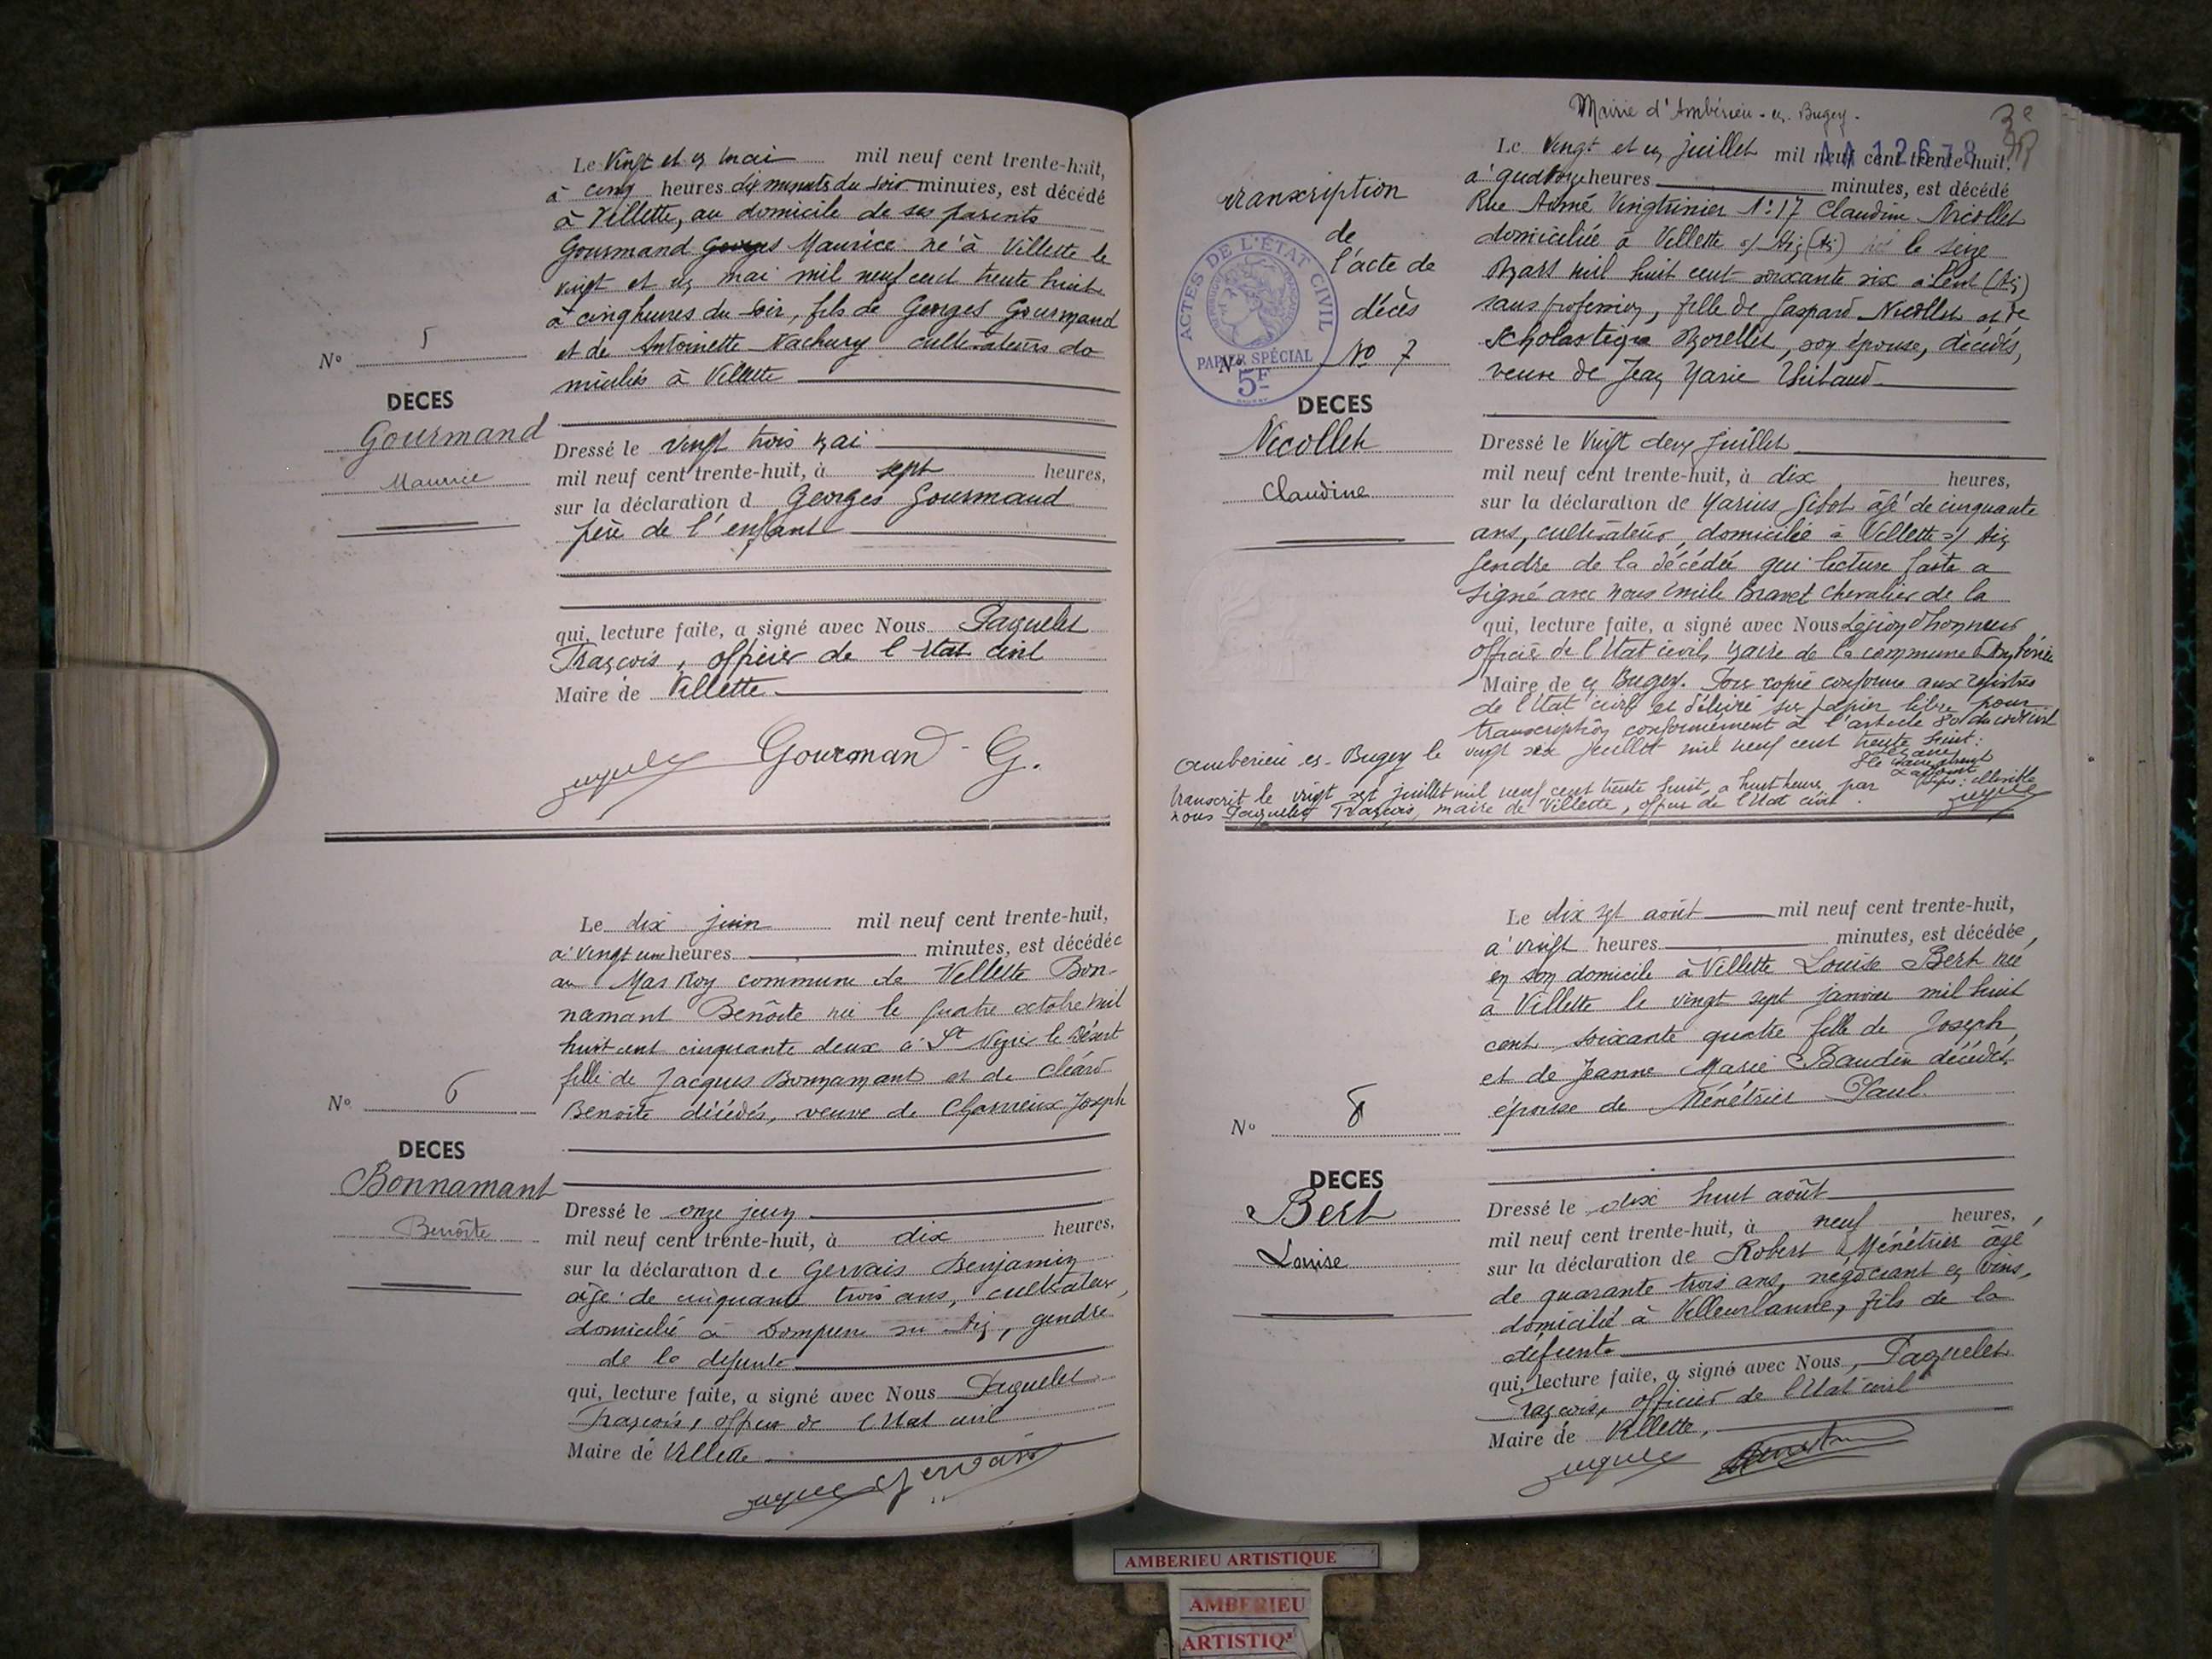 Le Vingt et un mai mil neuf cent trente-huit,
à cinq heures dix minutes du soir minutes, est décédé
à Villette, au domicile de ses parents
Gourmand Georges Maurice né à Villette le
vingt et un mai mil neuf cent trente huit
à cinq heures du soir, fils de Georges Gourmand
et de Antoinette Vachury cultivateurs do
miciliés à Villette
N° 5
DECES
Gourmand
Maurice
Dressé le vingt trois mai
mil neuf cent trente-huit, à sept heures,
sur la déclaration d Georges Gourmand
père de l'enfant
qui, lecture faite, a signé avec Nous Paquelet
François, officier de l'Etat civil
Maire de Villette
Gourmand G.
Le dix juin mil neuf cent trente-huit,
à vingt une heures minutes, est décédée
au Mas Roy commune de Villette Bon-
namant Benoîte née le quatre octobre mil
huit cent cinquante deux à St Nizier le Désert
fille de Jacques Bonnamant et de Cléard
Benoite décédés, veuve de Charvieux Joseph
N° 6
DECES
Bonnamant
Benoîte
Dressé le onze juin
mil neuf cent trente-huit, à dix heures,
sur la déclaration de Gervais Benjamin
âgé de cinquante trois ans, cultivateur,
domicilié à Dompierre sur Ain, gendre
de la défunte
qui, lecture faite, a signé avec Nous Paquelet
François, officier de l'Etat civil
Maire de Villette
Gervais
Mairie d'Ambérieu-en-Bugey.
3e
AA 12678
Le Vingt et un juillet mil neuf cent trente-huit,
à quatorze heures minutes, est décédé
Rue Aimé Vingtrinier N° 17 Claudine Nicollet
domiciliée à Villette s/ Ain (Ain) née le seize
Mars mil huit cent soixante six à Lent (Ain)
sans profession, fille de Gaspard Nicollet et de
Scholastique Morellet, son épouse, décédés,
veuve de Jean Marie Thibaud
transcription
de
l'acte de
décès
N° 7
ACTES DE L'ÉTAT CIVIL
PAPIER SPÉCIAL
5F
DECES
Nicollet
Claudine
Dressé le Vingt deux Juillet
mil neuf cent trente-huit, à dix heures,
sur la déclaration de Marius Gibot âgé de cinquante
ans, cultivateur, domicilié à Villette s/ Ain
Gendre de la décédée qui lecture faite a
signé avec nous Emile Bravet Chevalier de la
qui, lecture faite, a signé avec Nous Légion d'honneur
officier de l'Etat civil, maire de la commune d'Ambérieu
Maire de en Bugey. Pour copie conforme aux registres
de l'Etat civil et délivré sur papier libre pour
transcription conformément à l'article 80 du code civil
Ambérieu-en-Bugey le vingt six juillet mil neuf cent trente huit:
transcrit le vingt sept juillet mil neuf cent trente huit, à huit heures par
nous Paquelet François, maire de Villette, officier de l'Etat civil
Le dix sept août mil neuf cent trente-huit,
à vingt heures minutes, est décédée,
en son domicile à Villette Louise Bert née
à Villette le vingt sept janvier mil huit
cent soixante quatre fille de Joseph,
et de Jeanne Marie Baudin décédés,
épouse de Ménétrier Paul.
N° 8
DECES
Bert
Louise
Dressé le dix huit août
mil neuf cent trente-huit, à neuf heures,
sur la déclaration de Robert Ménétrier âgé
de quarante trois ans, négociant en vins,
domicilié à Villeurbanne, fils de la
défunte
qui, lecture faite, a signé avec Nous, Paquelet
François, officier de l'Etat civil
Maire de Villette,
AMBERIEU ARTISTIQUE
AMBERIEU
ARTISTIQ